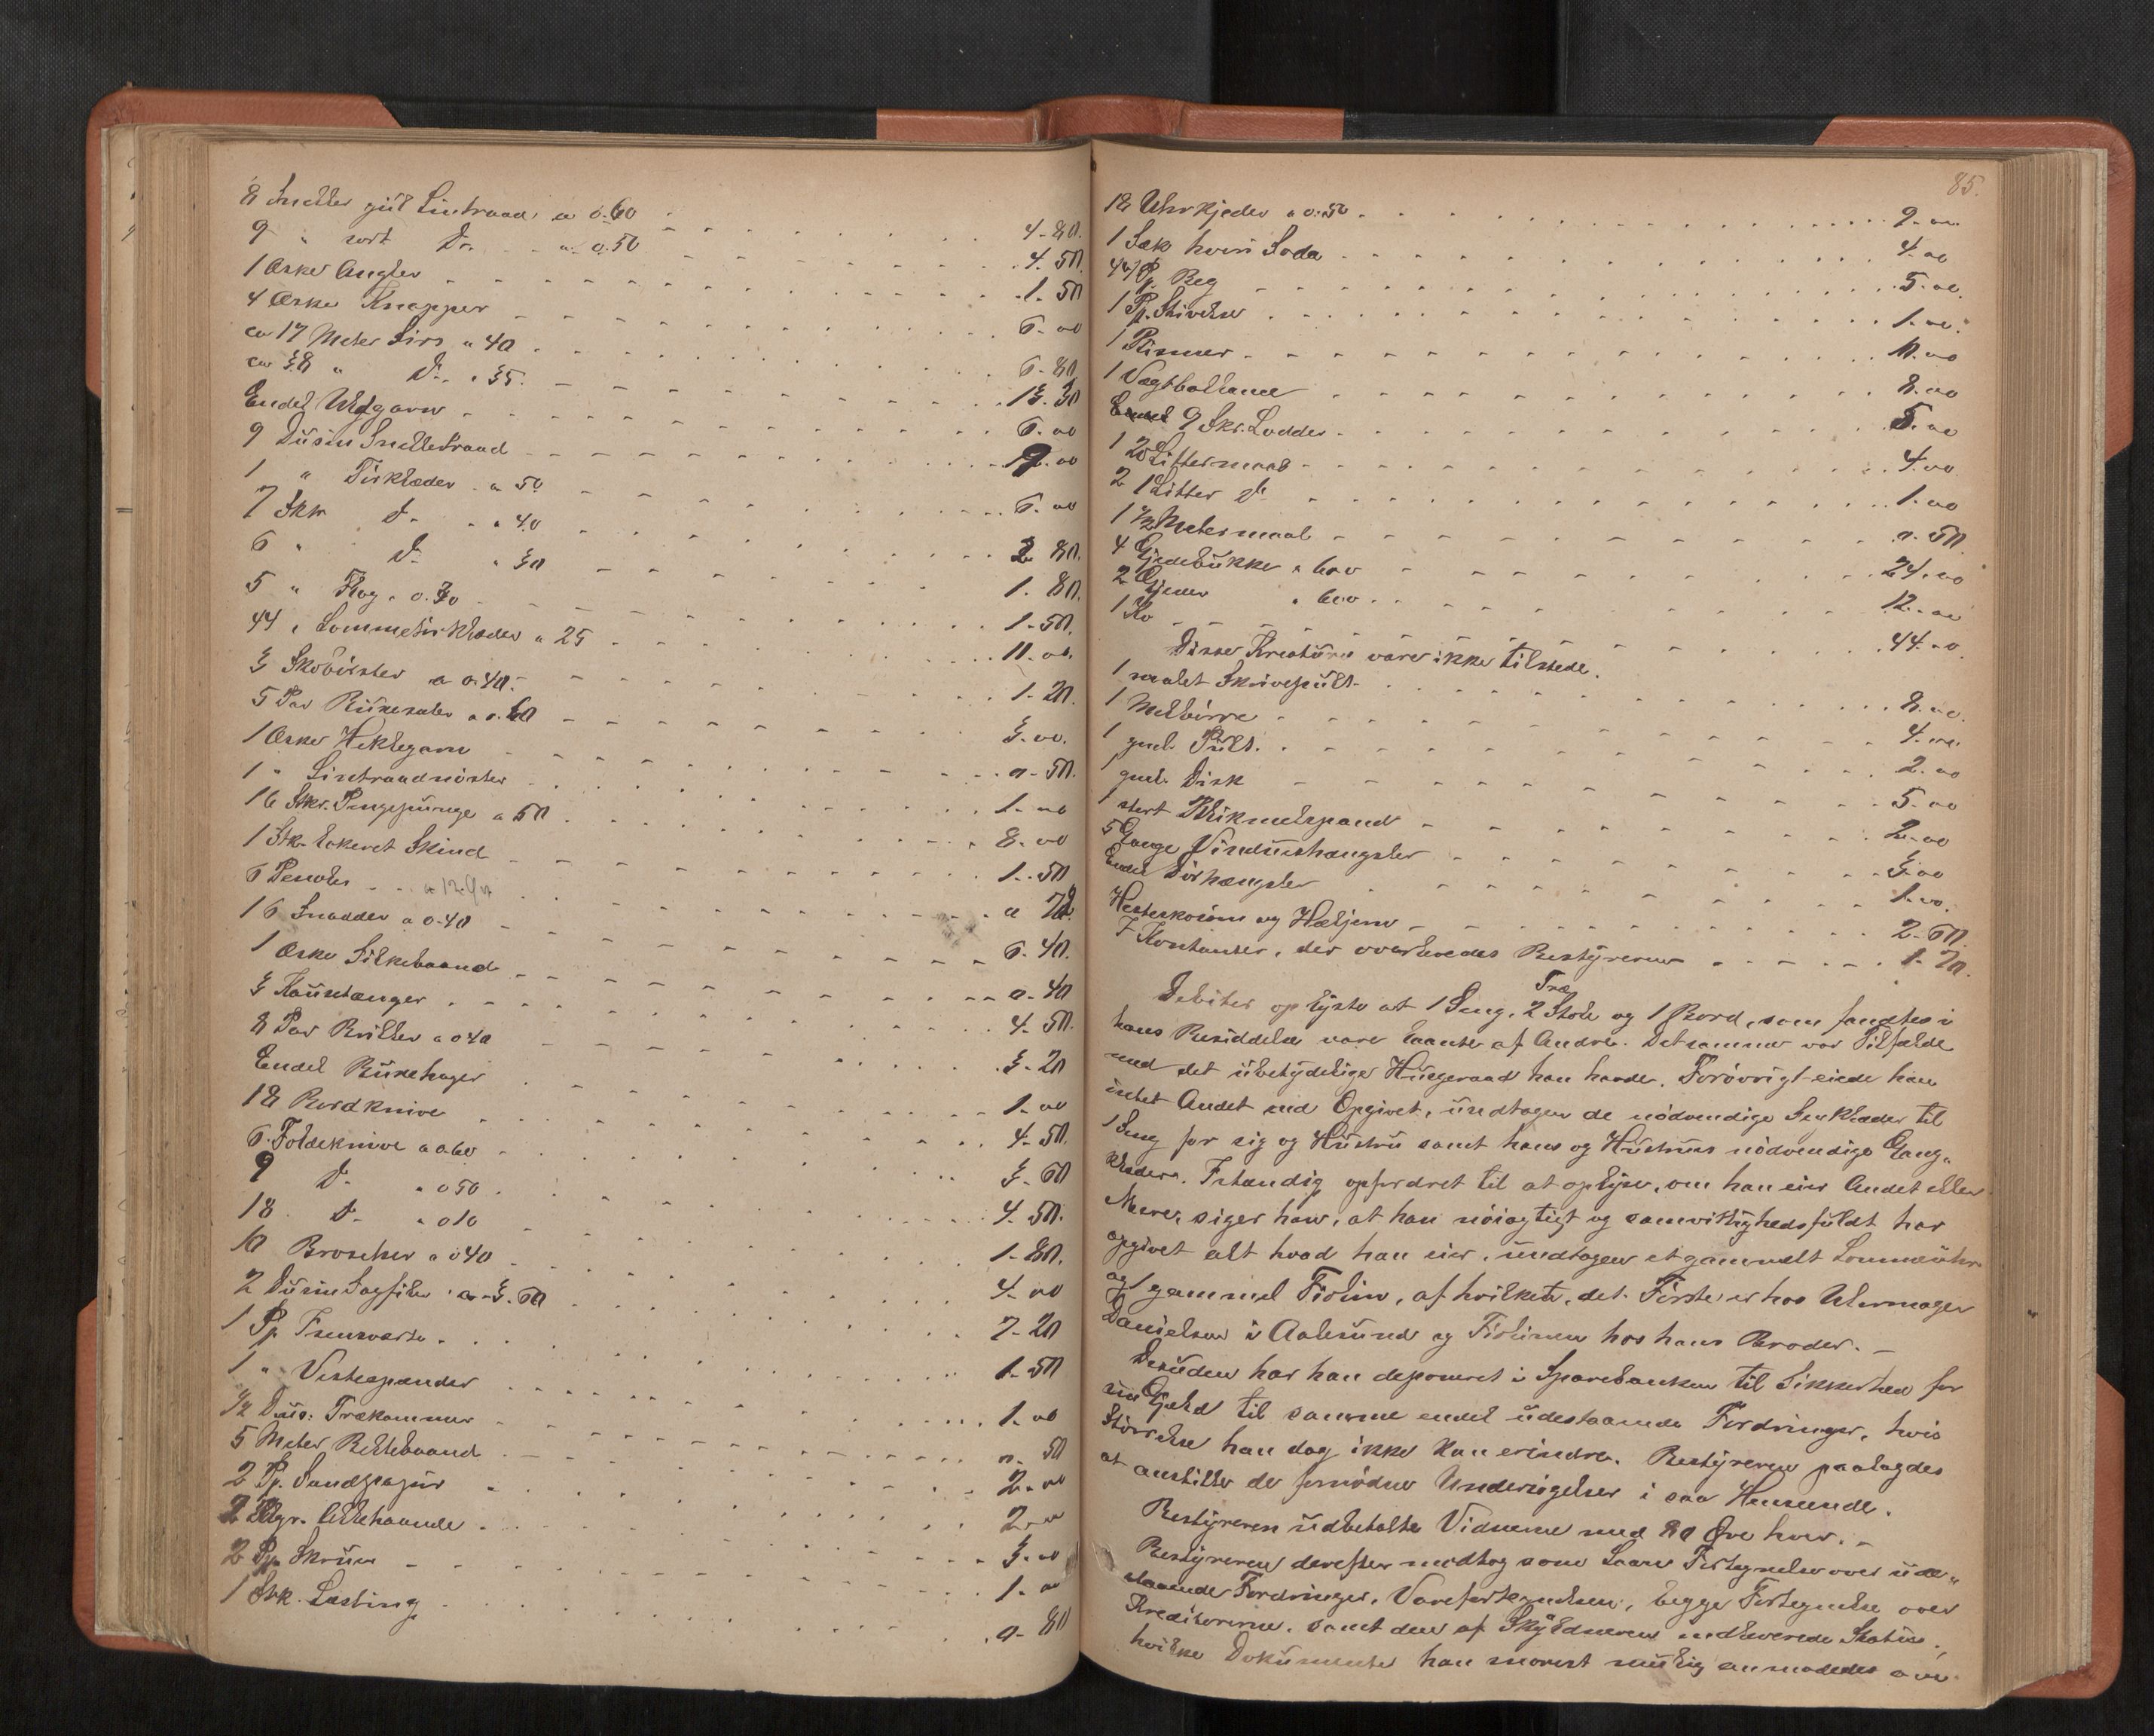 8 Sneller gul Lintraad a 0.60 4-80.
9 " sort Do. a 0.50 4.50.
1 Æske Angler 1.50
4 Æske Knapper 6.00
ca 17 Meter Sirs a 40 6.80
ca 38 " Do. a 35. 13.30
Endel Uldgarn 6.00
9 Dusin Snelletraad 9.00
1 " Tørklæder a 50 6.00
7 Stkr. Do a 40 2 80.
6 " Do " 30 1.80.
5 " Flag a 0.30 1.50.
44 " Lommetørklæder a 25 11.00.
3 Skobørster a 0.40. 1.20.
5 Par Buxeseler a 0.60 3.00.
1 Æske Heklegarn 0.50.
1 " Lintraadnøster 1.00
16 Stkr. Pengepunge a 50 8.00
1 Stk. lakeret Skind 1.50
6 Penoler a 12 Øre a 72
16 Snadder a 0.40 6.40.
1 Æske Silkebaand 0.40
3 Knibtænger 4.50.
8 Par Briller a 0 40 3.20
Endel Buxehager 1.00
18 Bordknive 4.50.
6 Foldeknive a 0.60 3.60
9 Do " 0 50 4.50.
18 Do " 0 10 1.80.
10 Broscher a 0 40 4.00
2 Dusin Sagfiler a 3.60 7.20
1 Pk 1.50
1 " Vestespænder 1.00
1/2 Dus. Trækammer 0.50
5 Meter Beltebaand 2.00
2 Pk. Sandpapir 2.00
2 3.00
2 Pk. Skruer 1.00
1 Stk. Lasting 0.80
85.
18 Uhrkjeder a 0.50 9.00
1 Sæk hvid Soda 4.00
44 Beg 5.00.
1 Pk. Stivelse 1.00.
1 Bismer 10.00
1 Vægtballance 8.00
Endel 9 Stkr. Lodder 5.00
1 20 Littermaal 4.00
2 1 Litter Do 1.00
1 1/2 Metermaal 0.50
4 Gjedebukke a 6.00 24.00
2 Gjeder a 6.00 12.00
1 Ko 44.00
Disse Kreature vare ikke tilstede.
1 malet Skrivepult 8.00.
1 Melbørre 4.00.
1 gml. Pult. 2.00
1 gml. Disk 5.00
1 stort Blikmelspand 2.00
5 Gange Vindueshængsler 3.00
Endel Dørhængsler 1.00.
Hesteskosøm og Hæljern 2.60.
I Kontanter, der overleveredes Bestyreren 1.70.
Debitor oplyste at 1 Seng, 2 Træ Stole og 1 Bord, som fandtes i
hans Besiddelse vare laante af Andre. Detsamme var Tilfælde
med det übetydelige Husgeraad han havde. Forøvrigt eiede han
intet Andet end Opgivet, undtagen de nødvendige Senklæder til
1 Seng for sig og Hustru samt hans og Hustrus nødvendige Gang-
klæder. Instændig opfordret til at oplyse, om han eier Andet eller
Mere, siger han, at han nøiagtigt og samvittighedsfuldt har
opgivet alt hvad han eier, undtagen et gammelt Lommeuhr
og 1 gammel Fiolin, af hvilke det Første er hos Uhrmager
Danielsen i Aalesund og Fiolinen hos hans Broder. —
Desuden har han deponeret i Sparebanken til Sikkerhed for
sin Gjæld til samme endel udestaaende Fordringer, hvis
Størrelse han dog ikke kan erindre. Bestyreren paalagdes
at anstille de fornødne Undersøgelser i saa Henseende.
Bestyreren udbetalte Vidnerne med 80 Øre hver. —
Bestyreren derefter modtog som Laan Fortegnelse over ude-
staaende Fordringer, Varefortegnelsen, begge Fortegnelse over
Kreditorerne, samt den af Skyldneren indleverede Status,
hvilke Dokumenter han snarest mulig anmodedes om